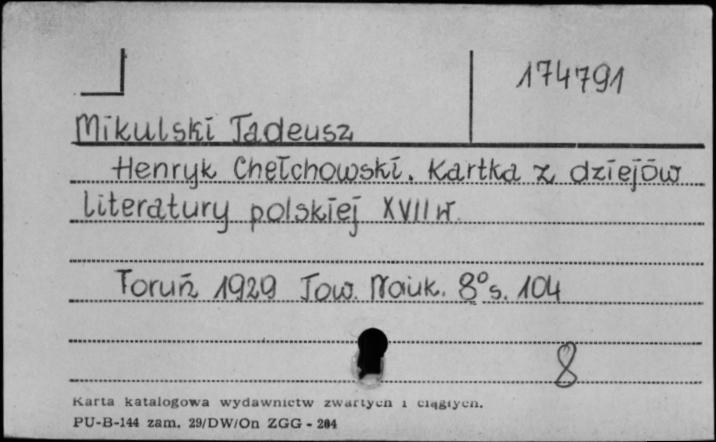 174791
Mikulski Tadeusz
Henryk Chełchowski. Kartka z dziejów
literatury polskiej XVII w.
Toruń 1929 Tow. Nauk. 8° s. 104
8
Karta katalogowa wydawnictw zwartych i ciągłych.
PU-B-144 zam. 29/DW/On ZGG - 204